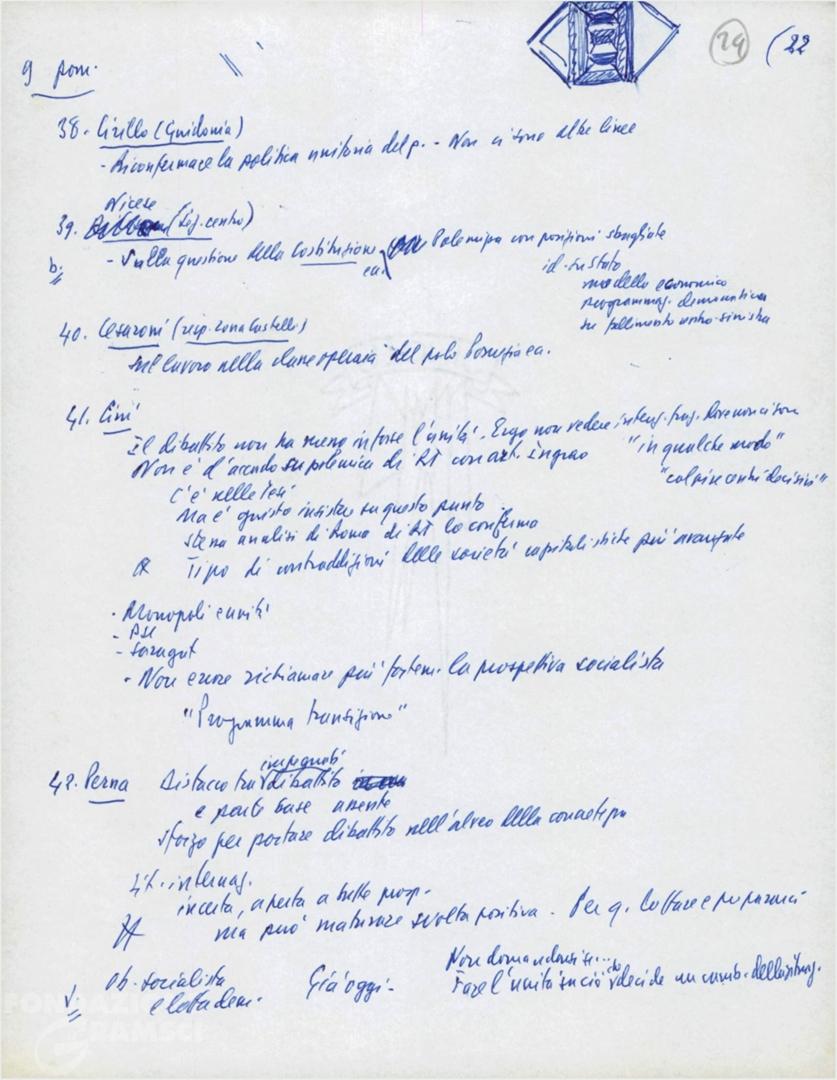 24 (22
9 pom.
38. Cirillo (Guidonia)
- Riconfermare la politica unitaria del p. - Non ci sono altre linee
Nicese
39. (Sez. centro)
b. - Sulla questione della Costituzione ecc. Polemica con posizioni sbagliate
id. su Stato
modello economico
programmaz. democratica
su fallimento centro-sinistra
40. Cesaroni (resp. zona Castelli)
sul lavoro nella classe operaia del polo Pomezia ecc.
41. Cini
Il dibattito non ha messo in forse l'unità. Ergo non vedere integ. fraz. dove non ci sono
Non è d'accordo su polemica di RT con art. Ingrao "in qualche modo"
C'è nelle tesi "colpire centri decisivi"
Ma è giusto insistere su questo punto
Stessa analisi di Roma di RT lo conferma
Tipo di contraddizioni delle società capitalistiche più avanzate
- Monopoli e unità
- PSI
- Saragat
- Non errore richiamare più fortem. la prospettiva socialista
"Programma transizione"
42. Perna Distacco tra dibattito impegnati
e parte base assente
Sforzo per portare dibattito nell'alveo della concretezza
Sit. internaz.
incerta, aperta a tutte prosp.
ma può maturare svolta positiva. Per q. lottare e prepararci
Ob. socialista Già oggi - Non domandarsi se...
e lotta dem. Fare l'unità su ciò che decide un camb. della situaz.
FONDAZIONE
GRAMSCI